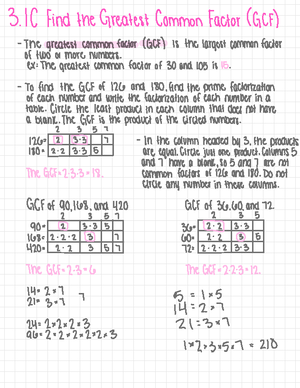 3.1C Find the Greatest Common Factor (GCF)
- The greatest common factor (GCF) is the largest common factor
of two or more numbers.
ex: The greatest common factor of 30 and 105 is 15.
- To find the GCF of 126 and 180, find the prime factorization
of each number and write the factorization of each number in a
table. Circle the least product in each column that does not have
a blank. The GCF is the product of the circled numbers.
2 3 5 7
126= 2 3·3 7
180= 2·2 3·3 5
The GCF=2·3·3=18.
- In the column headed by 3, the products
are equal. Circle just one product. Columns 5
and 7 have a blank, so 5 and 7 are not
common factors of 126 and 180. Do not
circle any number in these columns.
GCF of 90, 168, and 420
2 3 5 7
90= 2 3·3 5
168= 2·2·2 3 7
420= 2·2 3 5 7
The GCF=2·3=6
GCF of 36, 60, and 72.
2 3 5
36= 2·2 3·3
60= 2·2 3 5
72= 2·2·2 3·3
The GCF=2·2·3=12.
14= 2×7
21= 3×7
7
24= 2×2×2×3
96= 2×2×2×2×2×3
5 = 1×5
14 = 2×7
21 = 3×7
1×2×3×5×7 = 210